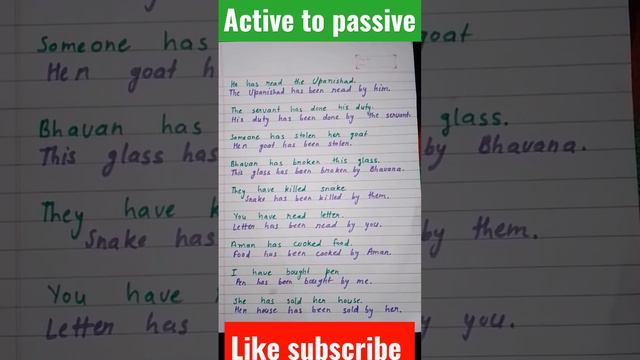 Active to passive
He has read the Upanishad.
The Upanishad has been read by him.
The servant has done his duty.
His duty has been done by the servant.
Someone has stolen her goat
Her goat has been stolen.
Bhavan has broken this glass.
This glass has been broken by Bhavana.
They have killed snake
Snake has been killed by them.
You have read letter.
Letter has been read by you.
Aman has cooked food.
Food has been cooked by Aman.
I have bought pen
Pen has been bought by me.
She has sold her house.
Her house has been sold by her.
Like subscribe
Someone has
goat
Her goat
Bhavan has
glass.
This glass has
by Bhavana.
They have
Snake has
by them.
You have
Letter has
by you.